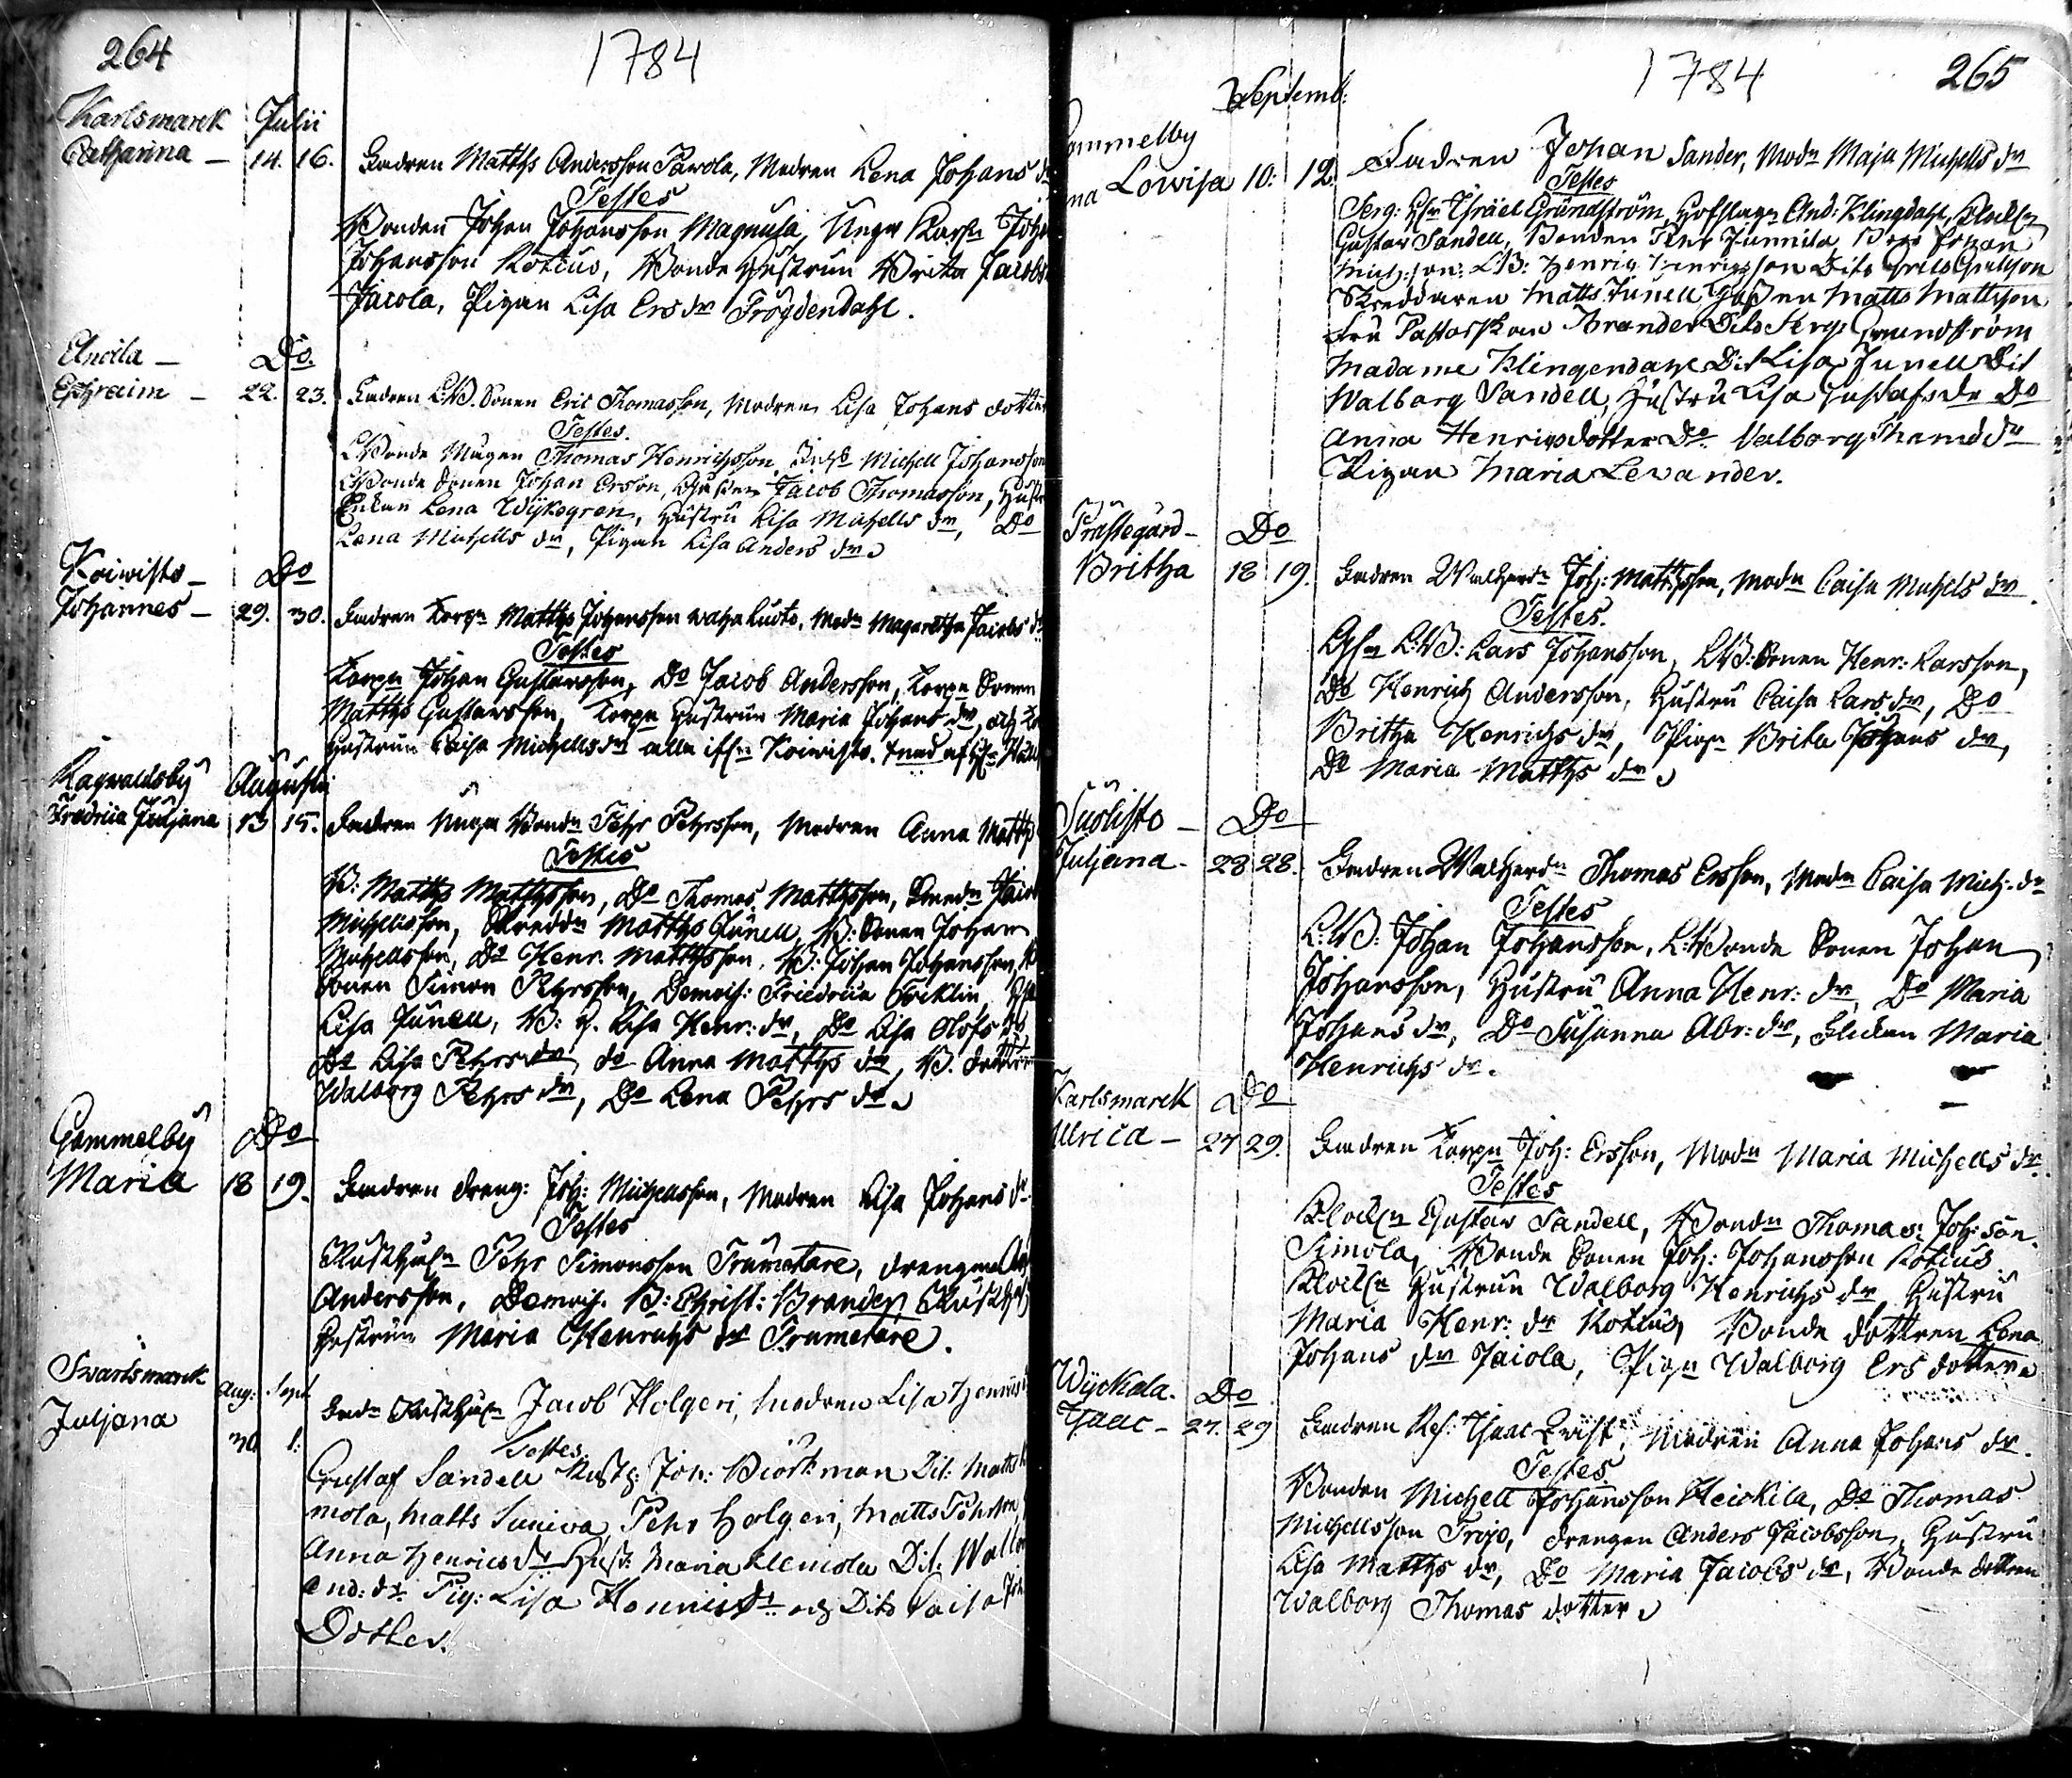 264
1784
Karlsmarck Julii
Catharina — 14. 16. Fadren Matths Andersson Parola, Modren Lena Johans dr
Testes
Bonden Johan Johansson Magnula, Unga Karln Joh
Johansson Kotius, Bonde Hustrun Brita Jacobs
Jacola, Pigan Lisa Ers dr Frögdendahl.
Ancila — Do.
Ephraim — 22. 23. Fadren L.B. Sonen Eric Thomasson, Modren Lisa Johans dotter
Testes.
LBonde Mågen Thomas Henrichsson, Michell Johansson
LBonde Sonen Johan Ersson, Jacob Thomasson, Hust
Enkan Lena Wijkogren, Hustru Lisa Michells dr, Do
Lena Michells dr, Pigan Lisa Anders dr
Koiwisto — Do
Johannes — 29. 30. Fadren Torpn Matths Johansson, Modn Magaretha Jacobs dr
Testes
Torpn Johan Gustavsson, Do Jacob Andersson, Torpn Sonen
Matths Gustavsson, Torpn Hustrun Maria Johans dr, och
Hustrun Caisa Michellsdr alla ifrn Koiwisto.
Ragvaldsby Augusti
Fredrica Juljana 13 15. Fadren Unga Bondn Pehr Pehrsson, Modren Anna Matths
Testes
B: Matths Matthsson, Do Thomas Matthsson, Jacob
Michellsson, Skreddn Matths Junell, B: Sonen Johan
Michellsson, Do Henr. Matthsson, B: Johan Johansson, B
Sonen Simon Pehrsson, Demois: Friedrica
Lisa Junell, B: H. Lisa Henr: dr, Do Lisa Olofs dr
Do Lisa Pehrs dr, do Anna Matths dr, B. dottren
Walborg Pehrs dr, Do Lena Pehrs dr
Gammelby Do
Maria 18 19. Fadren dreng: Joh: Michellsson, Modren Lisa Johans dr
Testes
Rusthåln Pehr Simonsson Trumetare, drengen
Andersson, Demois. B: Christ: Brander, Rusthål
Hustrun Maria Henrichs dr Trumetare.
Swartsmarck Aug: Sept
Juljana 30 1: Fadn Rusthåln Jacob Holgeri, modren Lisa Henrics
Testes.
Gustaf Sandell Rusth: Joh: Biörkman Dit: Matts
mola, Matts Suniva, Pehr Holgeri, Matts Pehrson
Anna Henrics dr Hust: Maria Klemola Dit: Walbor
And: dr Pig: Lisa Henrics dr och Dito Caisa Joh
Dotter.
1784 265
Septemb:
ammelby
na Lovisa 10: 12. Fadren Johan Sander, Modn Maja Michells dr
Testes
Serg: Hr Israël Grundström, Hofslagn And: Klingdahl, Klockn
Gustav Sandell, Bonden Pehr Junnila, Johan
Mich:son: LB: Henrig Henrigsson Dito
Skreddaren Matts Junell Matts Mattsson
Fru Pastorskan Brander Dito Serg: Grundström
Madame Klingendahl Dit Lisa Junell Dit
Walborg Sandell, Hustru Lisa Gustafs dr Do
Anna Henrigsdotter Do Valborg Thoms dr
Pigan Maria Levander.
Prästegård — Do
Britha 18 19. Fadren Joh: Matthsson, Modn Caisa Michels dr
Testes.
L:B: Lars Johansson, LB: Sonen Henr: Larsson,
Do Henrich Andersson, Hustru Caisa Lars dr, Do
Britha Henrichs dr, Pign Brita Johans dr,
Do Maria Matths dr
Suolisto — Do
Juljana — 28 28. Fadren Thomas Ersson, Modn Caisa Mich. dr
Testes
L:B: Johan Johansson, L:Bonde Sonen Johan
Johansson, Hustru Anna Henr: dr, Do Maria
Johans dr, Do Susanna Abr: dr, Flickan Maria
Henrichs dr.
Karlsmarck Do
Ulrica — 27 29. Fadren Torpn Joh: Ersson, Modn Maria Michells dr
Testes
Klockn Gustav Sandell, Bondn Thomas: Joh:son.
Simola, Bonde Sonen Joh: Johansson Kotius
Klockn Hustrun Walborg Henrichs dr Hustru
Maria Henr: dr Kotius, Bonde dottren Lena
Johans dr Jaiola, Pign Walborg Ers dotter
Wyckala. Do
Isaac — 27. 29 Fadren Isaac Modren Anna Johans dr.
Testes.
Bonden Michell Johansson Heickila, Do Thomas
Michellsson Trojo, drengen Anders Jacobsson, Hustru
Lisa Matths dr, Do Maria Jacobs dr, Bonde dottren
Walborg Thomas dotter